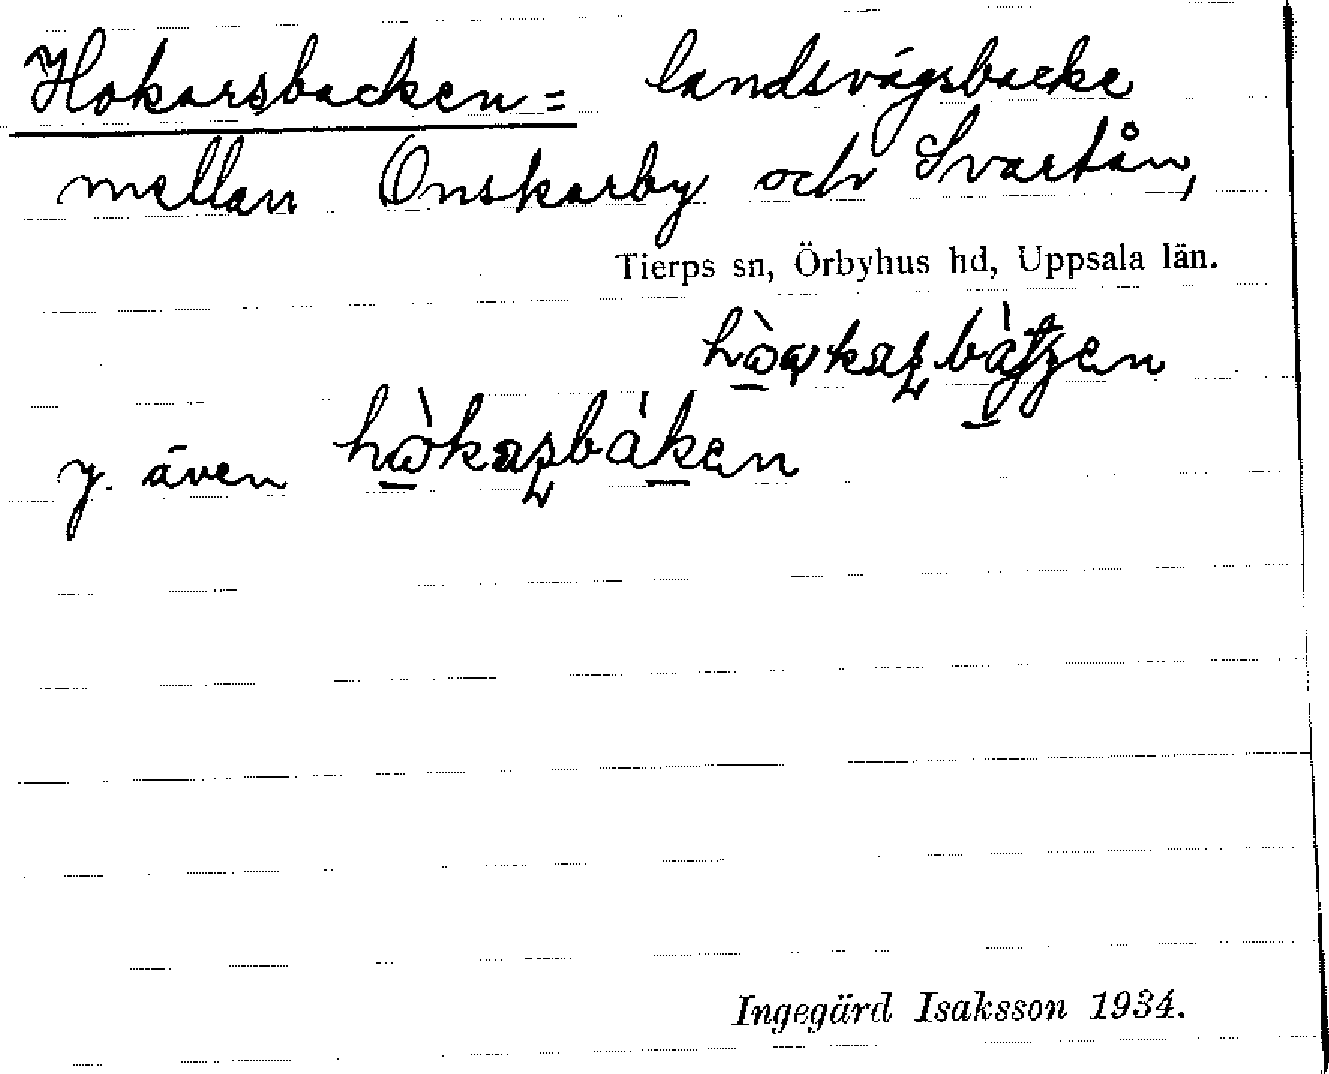 Hokarsbacken = landsvägsbacke
mellan Onskarby och Svartån,
Tierps sn, Örbyhus hd, Uppsala län.
y. även
Ingegärd Isaksson 1934.